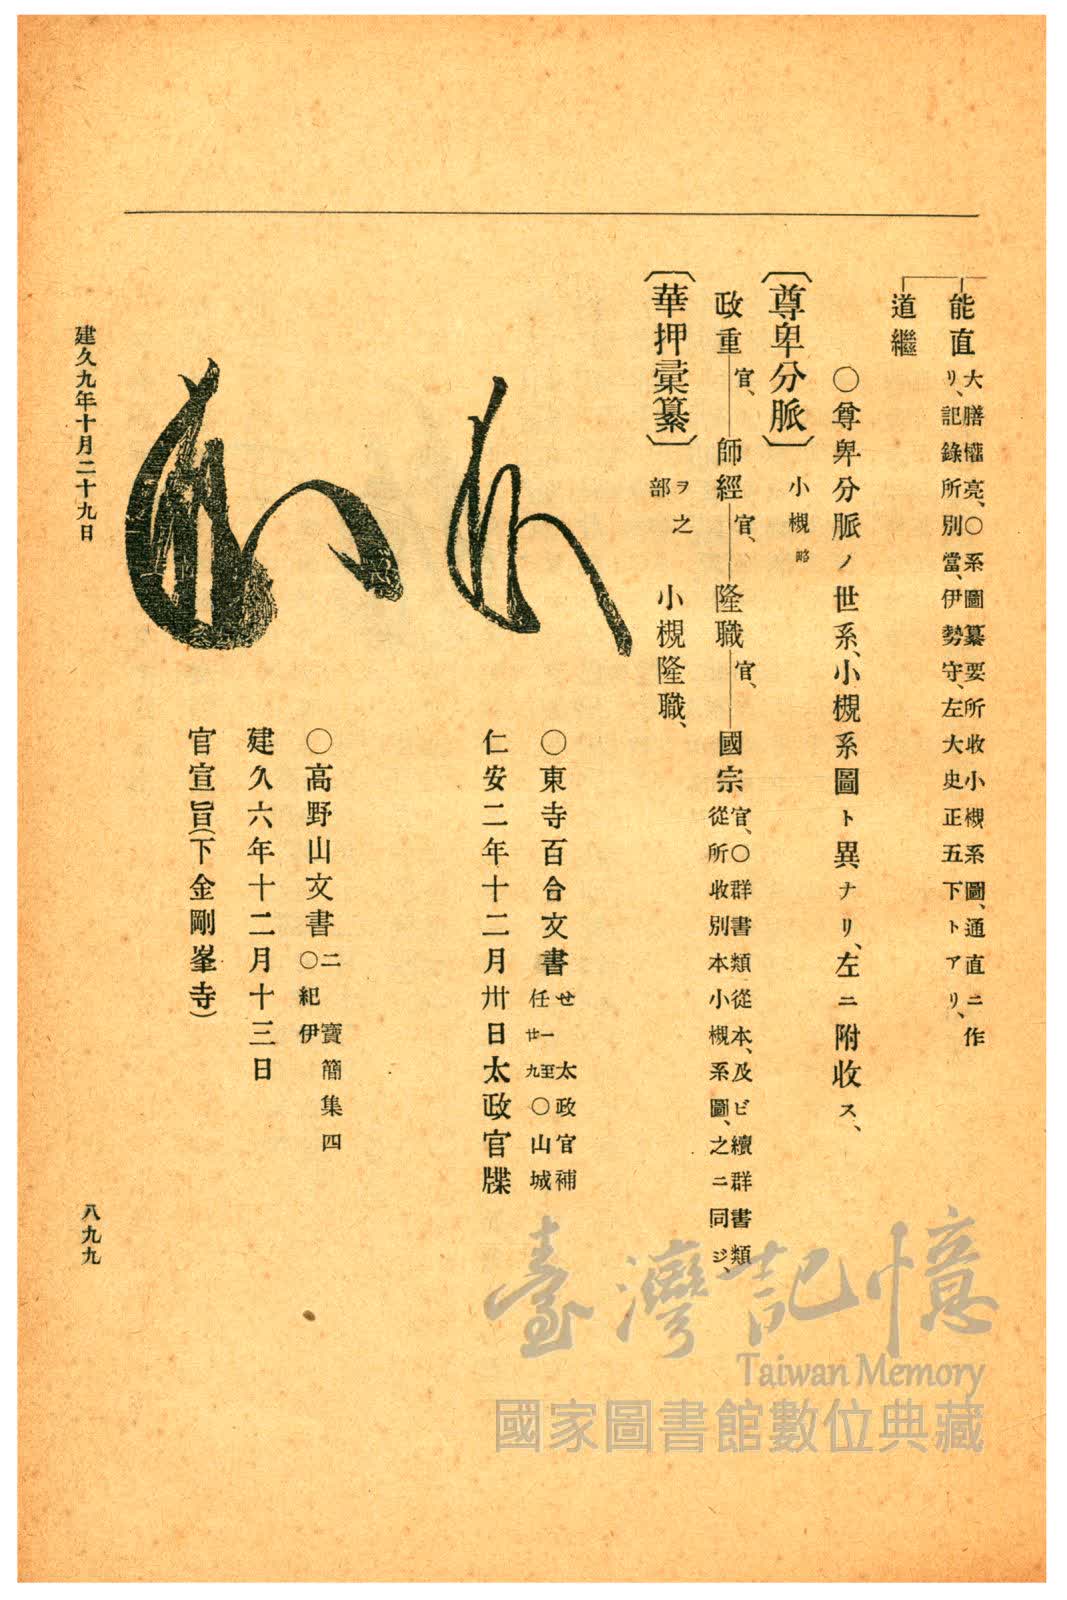 能直 大膳權亮、〇系圖纂要所收小槻系圖、通直ニ作
リ、記錄所別當、伊勢守、左大史正五下トアリ、
道繼
〇尊卑分脈ノ世系、小槻系圖ト異ナリ、左ニ附收ス、
〔尊卑分脈〕 小槻略
政重 官、 師經 官、 隆職 官、 國宗 官、〇群書類從本、及ビ續群書類
從所收別本小槻系圖、之ニ同ジ、
〔華押彙纂〕 ヲ之
部 小槻隆職、
〇東寺百合文書 せ一至 太政官補
任廿九〇山城
仁安二年十二月卅日太政官牒
〇高野山文書 二 寶簡集四
〇紀伊
建久六年十二月十三日
官宣旨(下金剛峯寺)
建久九年十月二十九日
八九九
臺灣記憶
Taiwan Memory
國家圖書館數位典藏